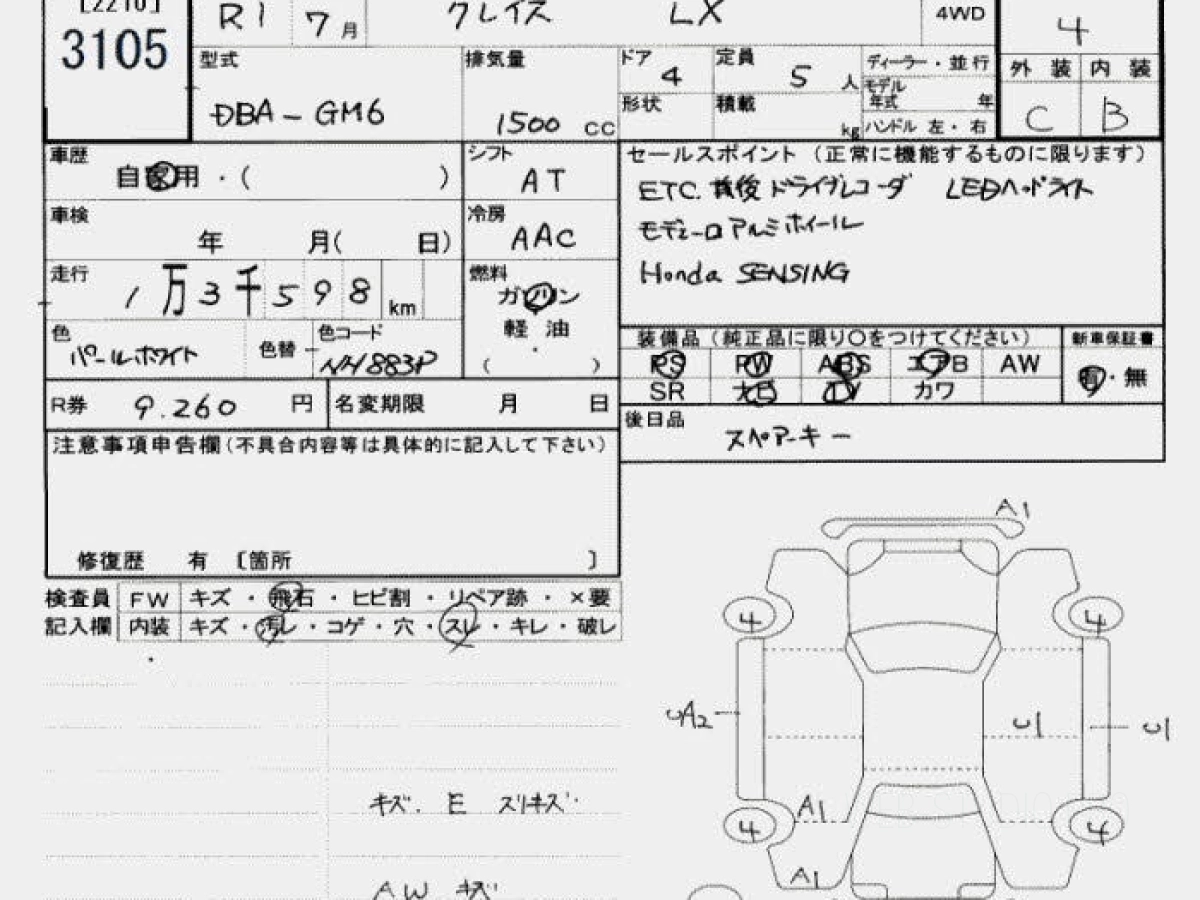 [2210]
3105
R1 7月 クレイズ LX 4WD
4
型式 DBA-GM6
排気量 1500 cc
ドア 4
定員 5 人
形状
積載 kg
ディーラー・並行
モデル年式 年
ハンドル 左・右
外装 内装
C B
車歴 自家用・( )
シフト AT
車検 年 月( 日)
冷房 AAC
走行 1万3千598 km
燃料 ガソリン
軽油
( )
色 パールホワイト
色替 -
色コード NH883P
R券 9.260 円
名変期限 月 日
セールスポイント (正常に機能するものに限ります)
ETC. 前後ドライブレコーダ LEDヘッドライト
モデューロアルミホイール
Honda SENSING
装備品 (純正品に限り○をつけてください)
新車保証書
PS PW ABS エアB AW
有・無
SR ナビ TV カワ
後日品 スペアーキー
注意事項申告欄(不具合内容等は具体的に記入して下さい)
修復歴 有 〔箇所 〕
検査員 FW キズ・飛石・ヒビ割・リペア跡・×要
記入欄 内装 キズ・汚レ・コゲ・穴・スレ・キレ・破レ
A1
4 4
UA2
U1 U1
キズ. E スリキズ
A1
4 4
A1
AW キズ